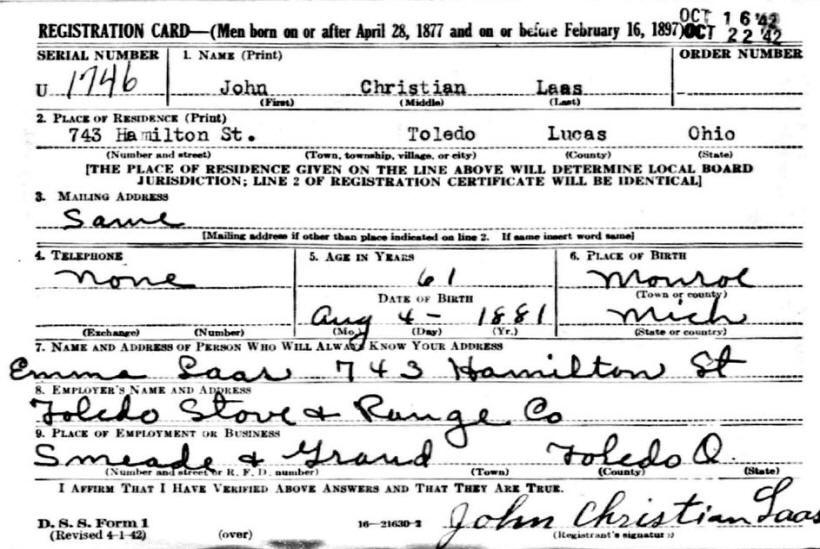 OCT 16 '42
REGISTRATION CARD—(Men born on or after April 28, 1877 and on or before February 16, 1897) OCT 22 '42
SERIAL NUMBER 1. NAME (Print) ORDER NUMBER
U 1746 John Christian Laas
(First) (Middle) (Last)
2. PLACE OF RESIDENCE (Print)
743 Hamilton St. Toledo Lucas Ohio
(Number and street) (Town, township, village, or city) (County) (State)
[THE PLACE OF RESIDENCE GIVEN ON THE LINE ABOVE WILL DETERMINE LOCAL BOARD
JURISDICTION; LINE 2 OF REGISTRATION CERTIFICATE WILL BE IDENTICAL]
3. MAILING ADDRESS
Same
[Mailing address if other than place indicated on line 2. If same insert word same]
4. TELEPHONE 5. AGE IN YEARS 6. PLACE OF BIRTH
none 61 Monroe
DATE OF BIRTH (Town or county)
Aug 4- 1881 Mich
(Exchange) (Number) (Mo.) (Day) (Yr.) (State or country)
7. NAME AND ADDRESS OF PERSON WHO WILL ALWAYS KNOW YOUR ADDRESS
Emma Laas 743 Hamilton St
8. EMPLOYER'S NAME AND ADDRESS
Toledo Stove & Range Co
9. PLACE OF EMPLOYMENT OR BUSINESS
Smeade & Grand Toledo O.
(Number and street or R. F. D. number) (Town) (County) (State)
I AFFIRM THAT I HAVE VERIFIED ABOVE ANSWERS AND THAT THEY ARE TRUE.
D. S. S. Form 1 16—21630-2 John Christian Laas
(Revised 4-1-42) (over) (Registrant's signature)